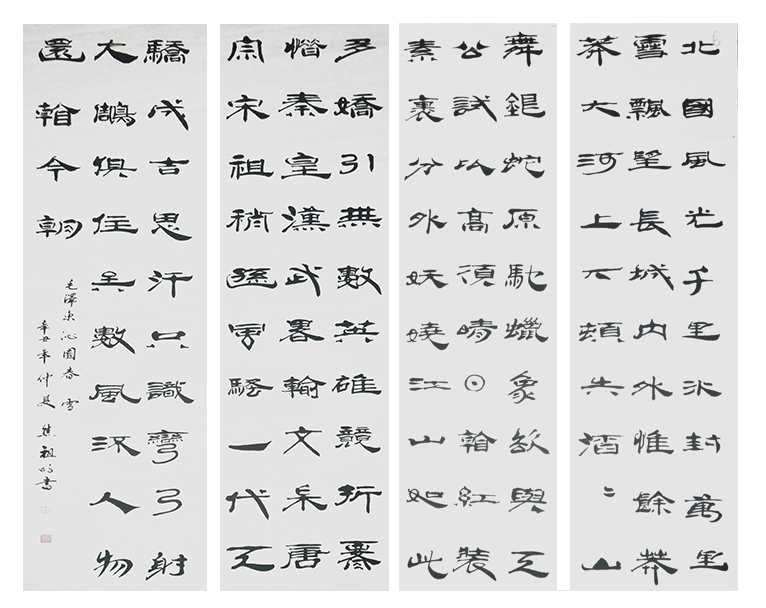 北國風光千里冰封萬里
雪飄望長城内外惟餘莽
莽大河上下頓失滔〻山
舞銀蛇原馳蠟象欲與天
公試比高須晴日看紅裝
素裹分外妖嬈江山如此
多嬌引無數英雄競折要
惜秦皇漢武畧輸文采唐
宗宋祖稍遜風騷一代天
驕成吉思汗只識彎弓射
大鵰俱往矣數風流人物
還看今朝
毛澤東沁園春 雪
辛丑年仲夏 焦祖書